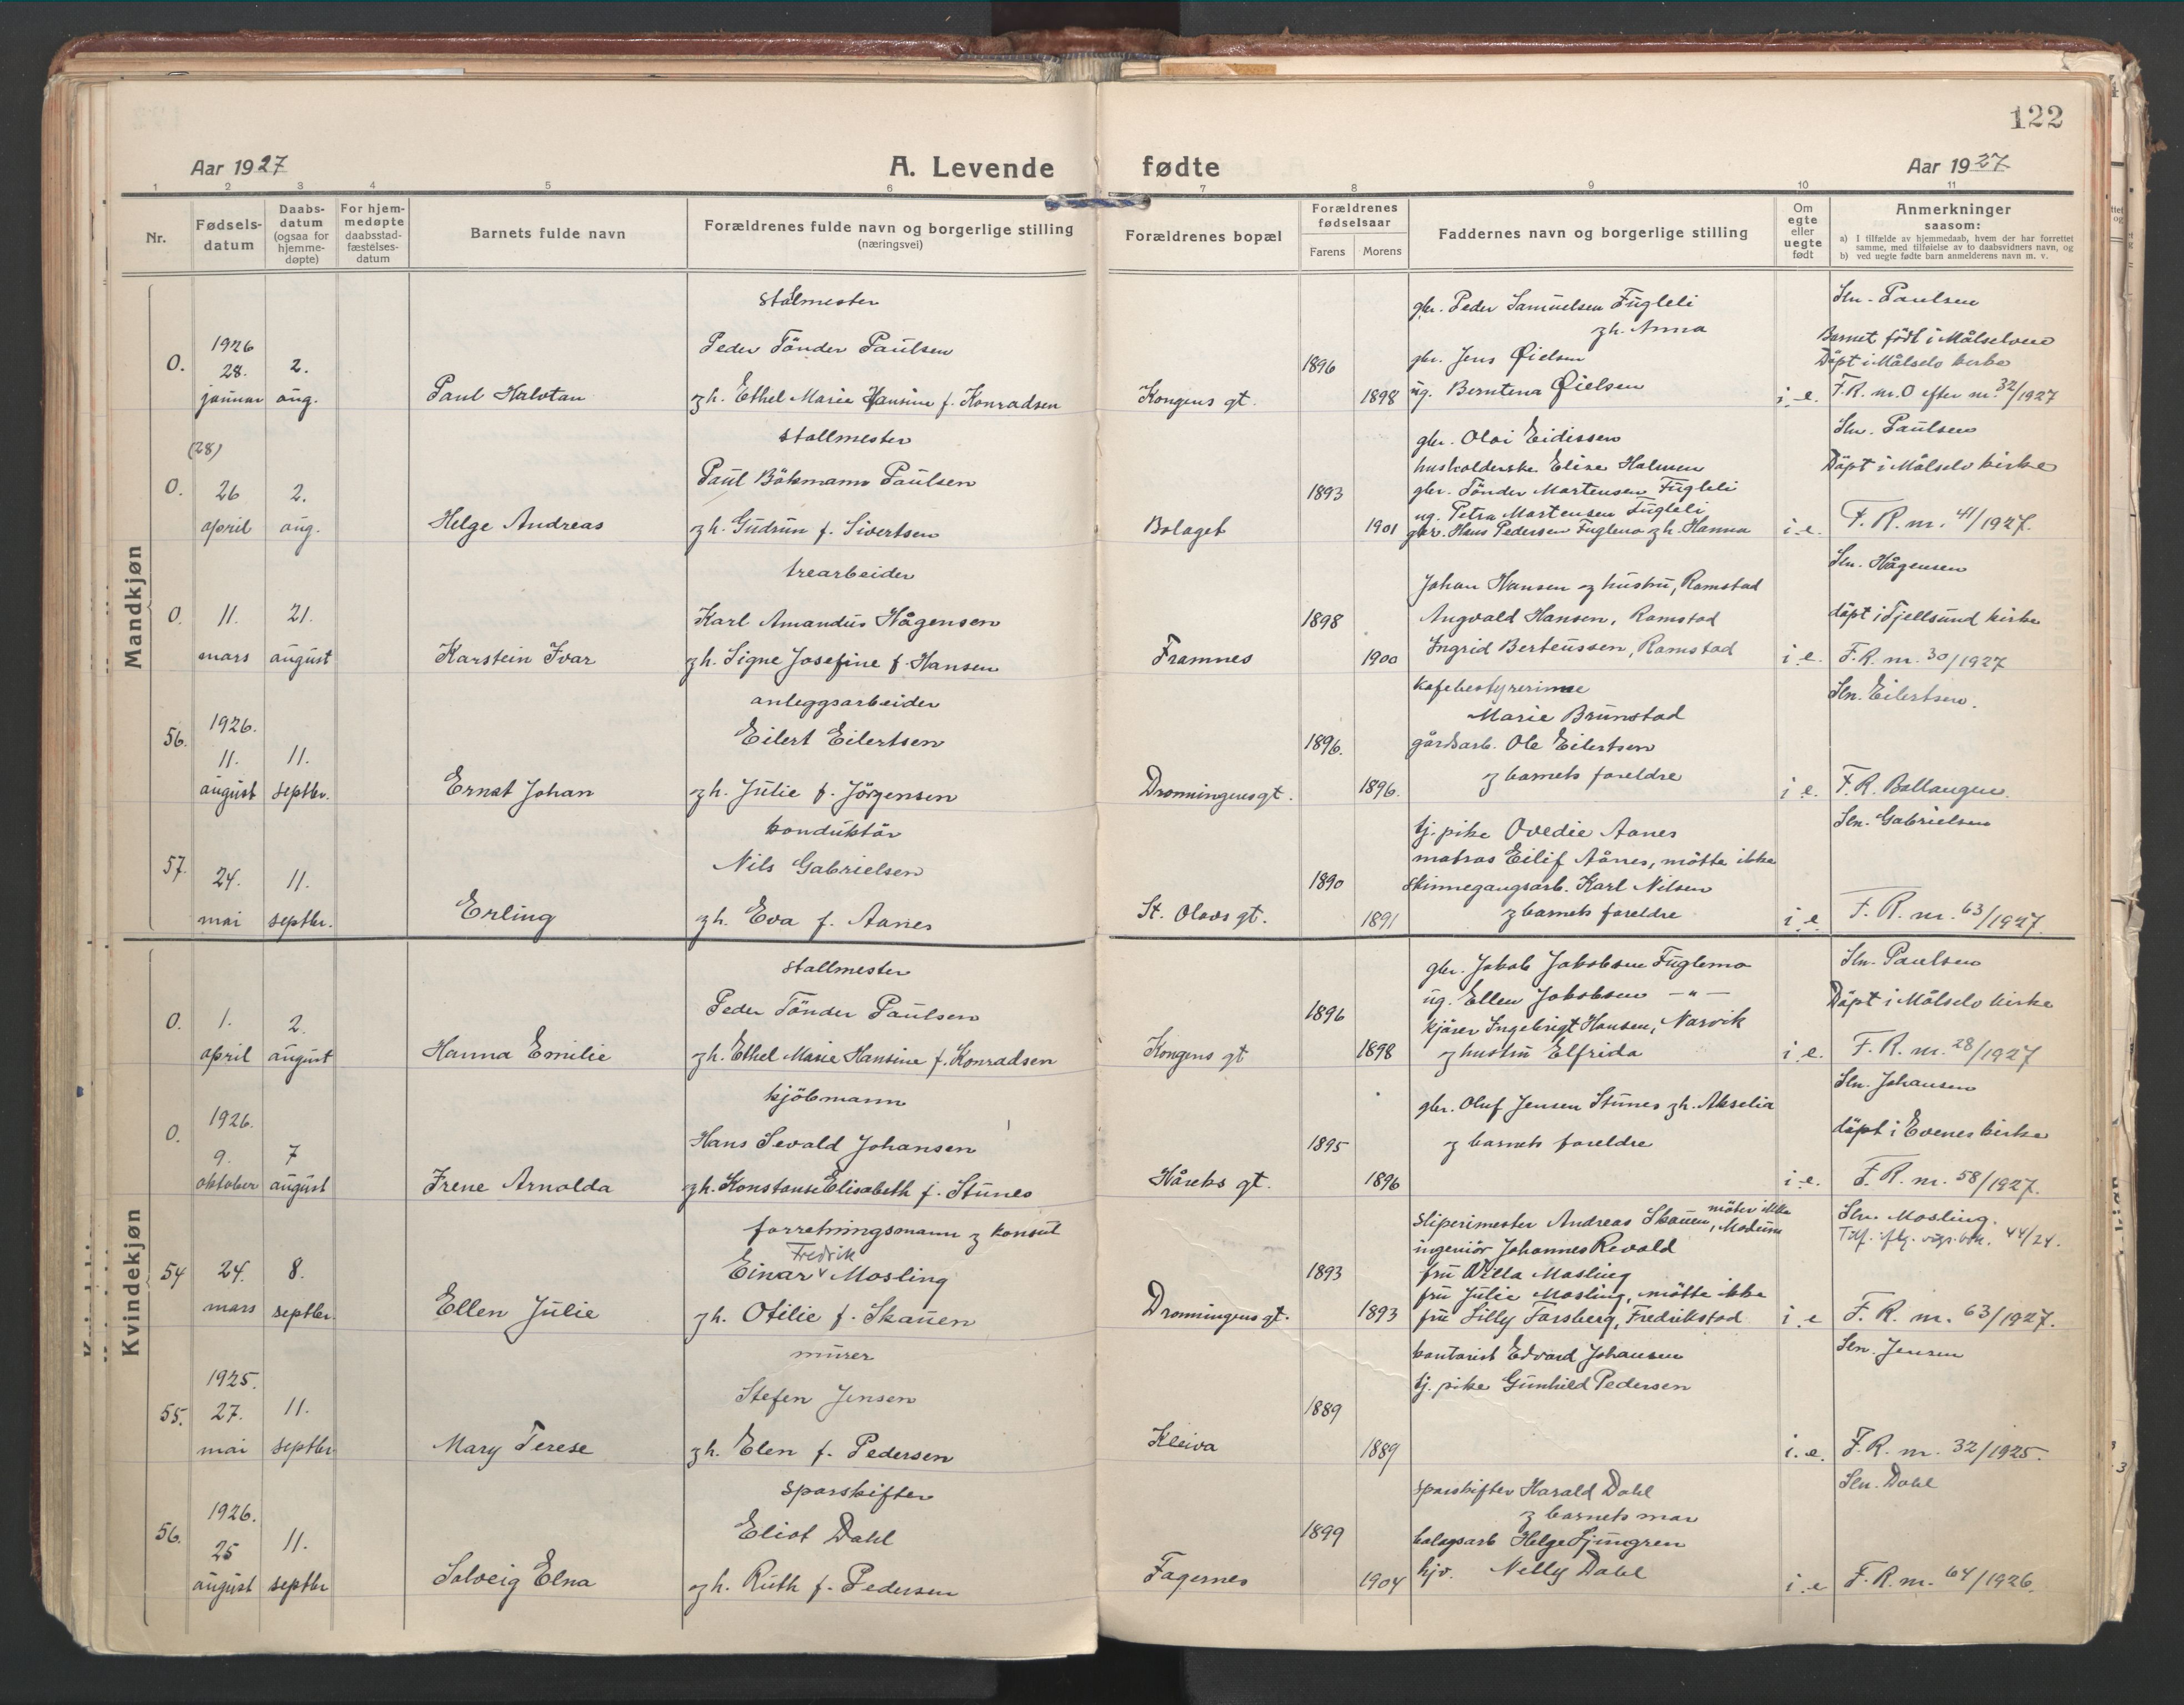 122
Aar 1927
A. Levende fødte
Aar 1927
1 2 3 4 5 6 7 8 9 10 11
Nr.
Fødsels-
datum
Daabs-
datum
(ogsaa for
hjemme-
døpte)
For hjem-
medøpte
daabsstad-
fæstelses-
datum
Barnets fulde navn
Forældrenes fulde navn og borgerlige stilling
(næringsvei)
Forældrenes bopæl
Forældrenes
fødselsaar
Farens
Morens
Faddernes navn og borgerlige stilling
Om
egte
eller
uegte
født
Anmerkninger
saasom:
a) I tilfælde av hjemmedaab, hvem der har forrettet
samme, med tilføielse av to daabsvidners navn, og
b) ved uegte fødte barn anmelderens navn m. v.
Mandkjøn
O.
1926
28.
januar
2.
aug.
Paul Halvtan
stalmester
Peder Tönder Paulsen
gh. Ethel Marie Hansine f. Konradsen
Kongens gt.
1896
1898
gbr. Peder Samuelsen Fugleli
gh. Anna
gbr. Jens Øielsen
ug. Berntena Øielsen
i. e.
Sln. Paulsen
Barnet född i Målselven
Döpt i Målselv kirke
F.R. nr. O efter nr. 32/1927
(28)
O.
26
april
2.
aug.
Helge Andreas
stallmester
Paul Bökmann Paulsen
gh. Gudrun f. Sivertsen
Bolaget
1893
1901
gbr. Olai Eidissen
husholderske Elise Halmen
gbr. Tönder Martensen Fugleli
ug. Petra Martensen Fugleli
gbr. Hans Pedersen Fuglemo gh. Hanna
i. e.
Sln. Paulsen
Döpt i Målselv kirke
F. R. nr. 41/1927.
O.
11.
mars
21.
august
Karstein Ivar
trearbeider
Karl Amandus Hågensen
gh. Signe Josefine f. Hansen
Framnes
1898
1900
Johan Hansen og hustru, Ramstad
Angvald Hansen, Ramstad
Ingrid Berteussen, Ramstad
i. e.
Sln. Hågensen
döpt i Tjellsund kirke
F.R. nr. 30/1927
56.
1926.
11.
august
11.
septbr.
Ernst Johan
anleggsarbeider
Eilert Eilertsen
gh. Julie f. Jörgensen
Dronningensgt.
1896.
1896.
kafebestyrerinne
Marie Brunstad
gårdsarb. Ole Eilertsen
og barnets foreldre
i. e.
Sln. Eilertsen.
F.R. Ballangen.
57.
24.
mai
11.
septbr.
Erling
konduktör
Nils Gabrielsen
gh. Eva f. Aanes
St. Olavs gt.
1890
1891
tj. pike Ovedie Aanes
matros Eilif Aånes, mötte ikke
skinnegangsarb. Karl Nilsen
og barnets foreldre
i. e.
Sln. Gabrielsen
F. R. nr. 63/1927.
Kvindekjøn
O.
1.
april
2.
august
Hanna Emilie
stallmester
Peder Tönder Paulsen
gh. Ethel Marie Hansine f. Konradsen
Kongens gt
1896
1898
gbr. Jakob Jakobsen Fuglemo
ug. Ellen Jakobsen — " —
kjörer Ingebrigt Hansen, Narvik
og hustru Elfrida
i. e.
Sln. Paulsen
Döpt i Målselv kirke
F. R. nr. 28/1927
O.
1926.
9.
oktober
7
august
Irene Arnolda
kjöbmann
Hans Sevald Johansen
gh. Konstanse Elisabeth f. Stunes
Håreks gt.
1895
1896
gbr. Oluf Jensen Stunes gh. Akselia
og barnets foreldre
i. e.
Sln. Johansen
döpt i Evenes kirke
F. R. nr. 58/1927.
54
24.
mars
8.
septbr.
Ellen Julie
forretningsmann og konsul
Fredrik
Einar ˅ Mosling
gh. Otilie f. Skauen
Dronningensgt.
1893
1893
sliperimester Andreas Skauen, Modum möter ikke
ingeniör Johannes Revold
fru Villa Mosling
fru Julie Mosling, mötte ikke
fru Lilly Forsberg, Fredrikstad
i. e
Sln. Mosling.
44/24.
F. R. nr. 63/1927.
55.
1925.
27.
mai
11.
septbr
Mary Terese
murer
Stefen Jensen
gh. Elen f. Pedersen
Kleiva
1889
1889
kontorist Edvard Johansen
tj. pike Gunhild Pedersen
i. e.
Sln. Jensen
F. R. nr. 32/1925.
56.
1926.
25
august
11.
septbr
Solveig Elna
sporskifter
Eliot Dahl
gh. Ruth f. Pedersen
Fagernes
1899
1904
sporskifter Harald Dahl
og barnets mor
bolagsarb Helge Ljungren
hjv. Nelly Dahl
i. e
Sln. Dahl
F. R. nr. 64/1926.